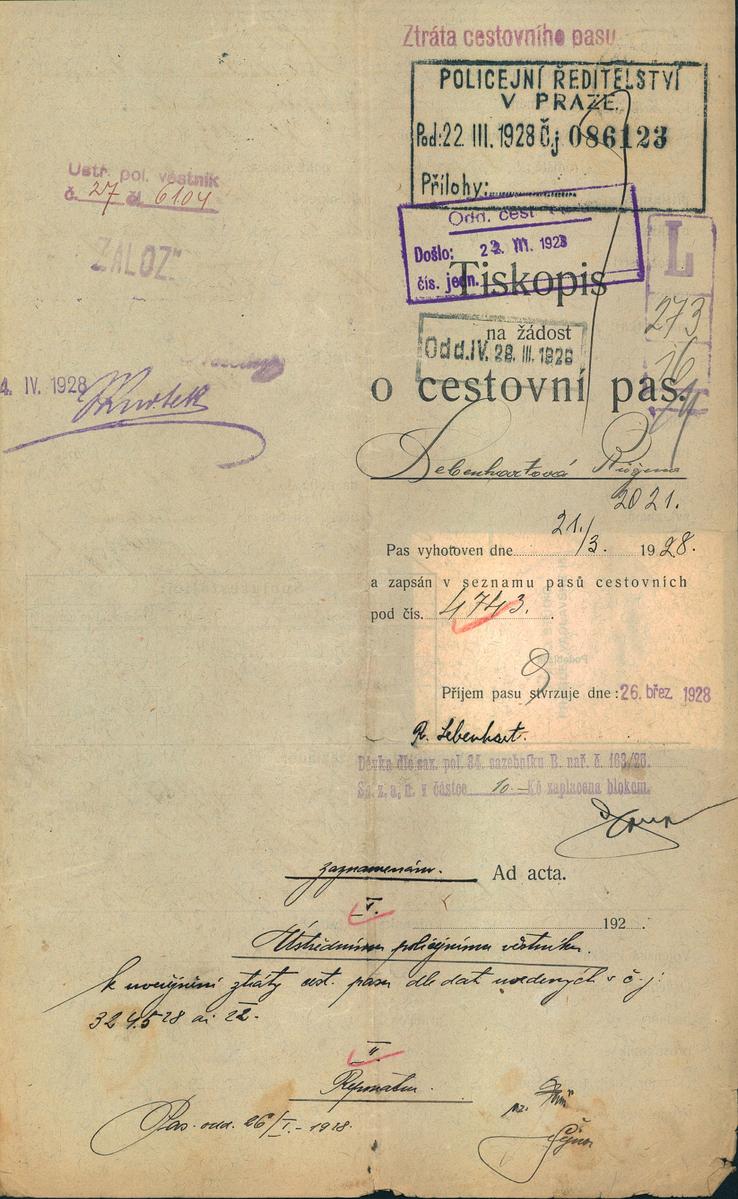 Ztráta cestovního pasu
POLICEJNÍ ŘEDITELSTVÍ
V PRAZE.
Pod: 22 III. 1928 Č.j 086123
Přílohy:
Ústř. pol. věstník
č. 27 čl. 6104
Odd. cest
Došlo: 22. III. 1928
čís. jedn.
L
273
16
ZALOŽ
Tiskopis
na žádost
Odd. IV. 28. III. 1928
o cestovní pas.
4. IV. 1928
Lebenhartová Růžena
2021.
Pas vyhotoven dne 21./3. 1928.
a zapsán v seznamu pasů cestovních
pod čís. 4743.
Příjem pasu stvrzuje dne: 26. břez. 1928
R. Lebenhart.
Dávka dle sax. pol. 34. sazebníku B. nař. č. 163/20.
Sb. z. a. n. v částce 10.- Kč zaplacena blokem.
zaznamenám. Ad acta.
I. 192 .
Ústřednímu policejnímu věstníku.
k uveřejnění ztráty cest. pasu dle dat uvedených v č. j.
II.
Pas. odd. 26/I. - 1928.